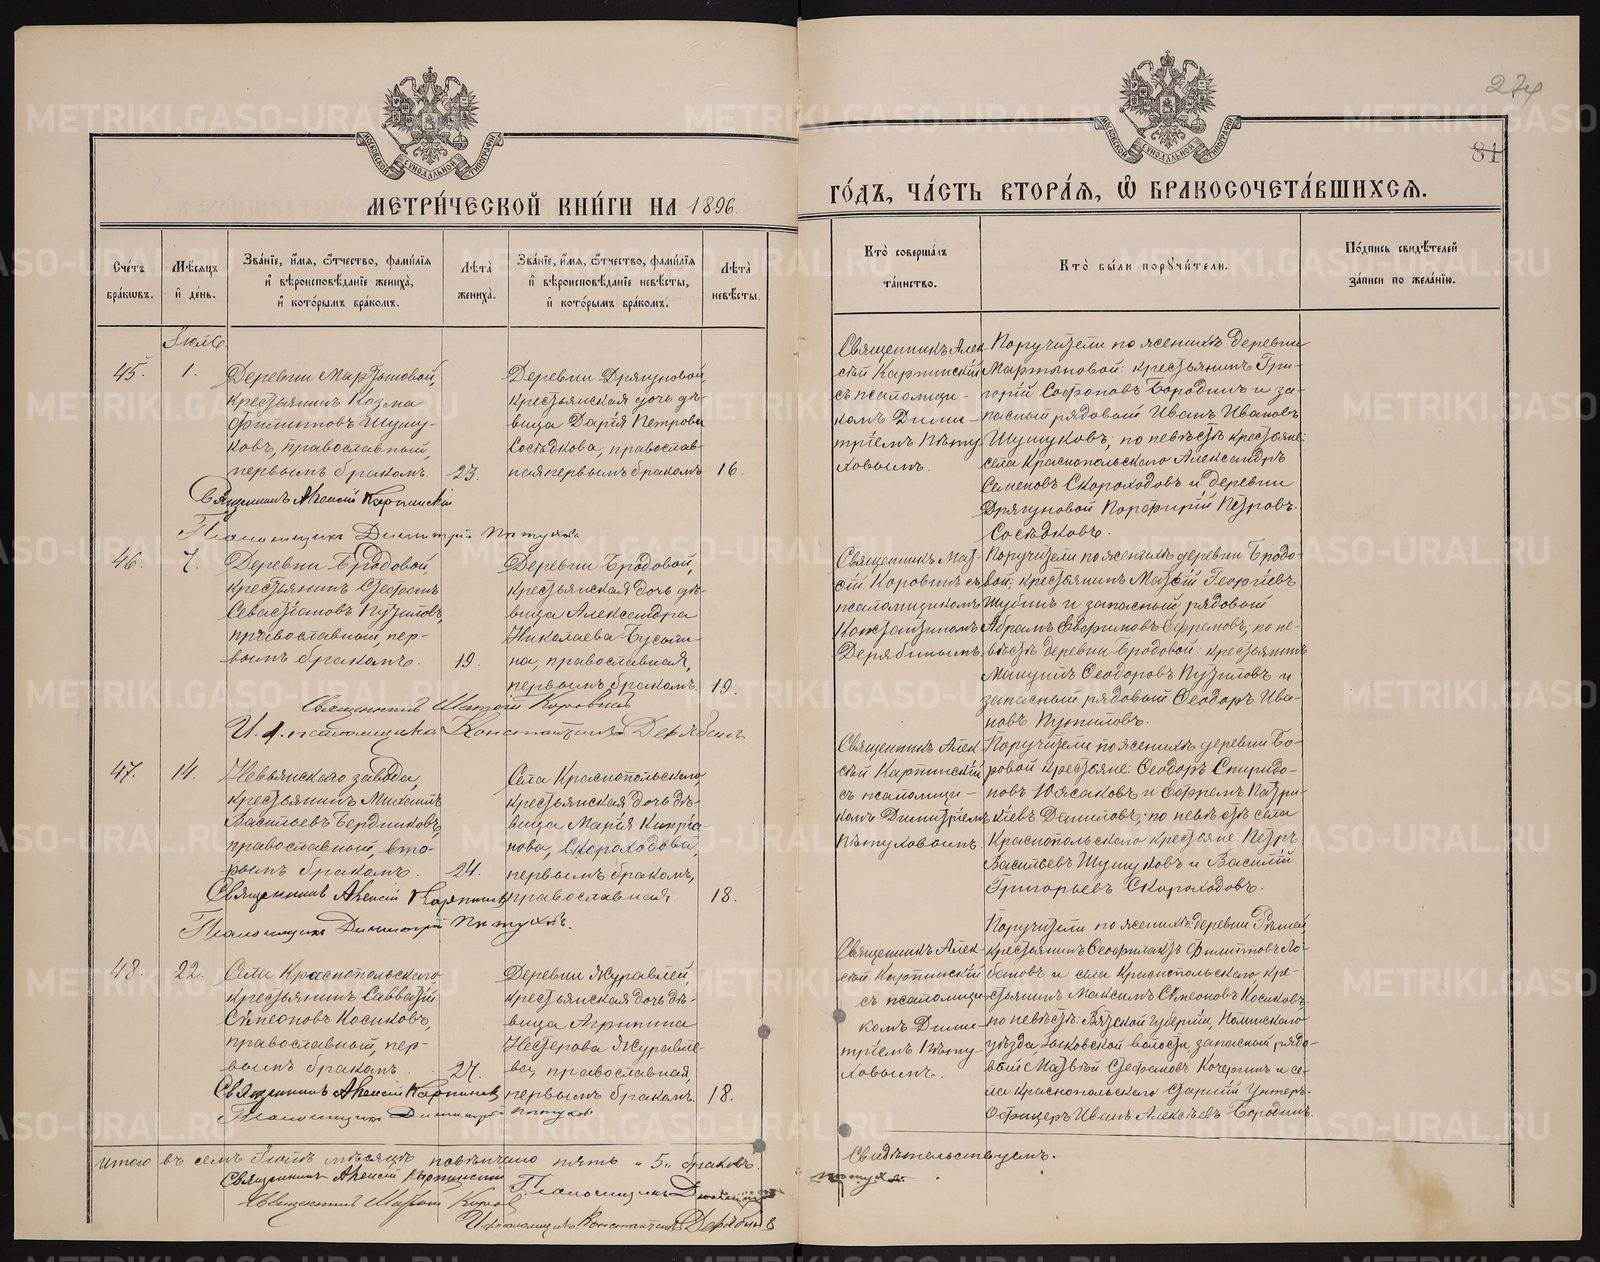 274
81
МОСКОВСКОЙ СѴНОДАЛЬНОЙ ТИПОГРАФІИ
МОСКОВСКОЙ СѴНОДАЛЬНОЙ ТИПОГРАФІИ
МЕТРИ́ЧЕСКОЙ КНИ́ГИ НА 1896
ГО́ДЪ, ЧА́СТЬ ВТОРА́Ѧ, Ѽ БРАКОСОЧЕТА́ВШИХСѦ.
Сче́тъ бра́кѡвъ.
Мѣ́сѧцъ и҆ де́нь.
Зва́нїе, и҆́мѧ, ѻ҆́тчество, фами́лїѧ
и҆ вѣроисповѣ́данїе жениха̀,
и҆ кото́рымъ бра́комъ.
Лѣта̀ жениха̀.
Зва́нїе, и҆́мѧ, ѻ҆́тчество, фами́лїѧ
и҆ вѣроисповѣ́данїе невѣ́сты,
и҆ кото́рымъ бра́комъ.
Лѣта̀ невѣ́сты.
Кто̀ соверша́лъ
та́инство.
Кто̀ бы́ли порꙋчи́тели.
По́дпись свидѣ́телей
за́писи по жела́нїю.
Іюль
45.
1.
Деревни Мартыновой,
крестьянинъ Козма
Филипповъ Шушу-
ковъ, православный,
первымъ бракомъ.
23.
Деревни Дрягуновой,
крестьянская дочь дѣ-
вица Дарія Петрова
Сосѣдкова, православ-
ная первымъ бракомъ
16.
Священникъ Алек-
сій Карпинскій
съ псаломщи-
комъ Дими-
тріемъ Пѣту-
ховымъ.
Поручители по женихѣ деревни
Мартыновой: крестьянинъ Гри-
горій Софоновъ Бородинъ и за-
пасный рядовой Иванъ Ивановъ
Шушуковъ; по невѣстѣ крестьяне:
села Краснопольскаго Александръ
Семеновъ Скороходовъ и деревни
Дрягуновой Порфирій Петровъ
Сосѣдковъ.
Священникъ Алексій Карпинскій
Псаломщикъ Димитрій Пѣтуховъ
46.
7.
Деревни Бродовой,
крестьянинъ Стефанъ
Севастіановъ Путиловъ,
православный, пер-
вымъ бракомъ.
19.
Деревни Бродовой,
крестьянская дочь дѣ-
вица Александра
Николаева Бусыги-
на, православная,
первымъ бракомъ.
19.
Священникъ Мат-
ѳій Коровинъ съ
псаломщикомъ
Константиномъ
Дерябинымъ.
Поручители по женихѣ деревни Бродо-
вой: крестьянинъ Матѳій Георгіевъ
Шубинъ и запасный рядовой
Абрамъ Евфимовъ Ефремовъ; по не-
вѣстѣ деревни Бродовой: крестьянинъ
Мануилъ Ѳеодоровъ Путиловъ и
запасный рядовой Ѳеодоръ Ива-
новъ Путиловъ.
Священникъ Матѳій Коровинъ
И. д. псаломщика Константинъ Дерябинъ
47.
14.
Невьянскаго завода,
крестьянинъ Михаилъ
Васильевъ Бердниковъ,
православный, вто-
рымъ бракомъ.
24.
Села Краснопольскаго,
крестьянская дочь дѣ-
вица Марія Кипріа-
нова, Скороходова,
первымъ бракомъ,
православная.
18.
Священникъ Алек-
сій Карпинскій
съ псаломщи-
комъ Димитріемъ
Пѣтуховымъ.
Поручители по женихѣ деревни Бо-
ровой крестьяне: Ѳеодоръ Спиридо-
новъ Южаковъ и Ефремъ Патри-
кіевъ Даниловъ; по невѣстѣ села
Краснопольскаго крестьяне Петръ
Васильевъ Шушуковъ и Василій
Григорьевъ Скороходовъ.
Священникъ Алексій Карпинскій
Псаломщикъ Димитрій Пѣтуховъ.
48.
22.
Села Краснопольскаго
крестьянинъ Савватій
Сѵмеоновъ Косиковъ,
православный, пер-
вымъ бракомъ.
27.
Деревни Журавлей,
крестьянская дочь дѣ-
вица Агрипина
Нестерова Журавле-
ва, православная,
первымъ бракомъ.
18.
Священникъ Алек-
сій Карпинскій
съ псаломщи-
комъ Дими-
тріемъ Пѣту-
ховымъ.
Поручители по женихѣ деревни
крестьянинъ Ѳеофилактъ Филипповъ Ло-
бановъ и села Краснопольскаго кре-
стьянинъ Максимъ Сѵмеоновъ Косиковъ,
по невѣстѣ: Вятской губерніи, Нолинскаго
уѣзда, волости, запасный рядо-
вой Матвѣй Стефановъ Кочергинъ и се-
ла Краснопольскаго старшій унтеръ-
офицеръ Иванъ Алексѣевъ Бородинъ.
Священникъ Алексій Карпинскій
Псаломщикъ Димитрій Пѣтуховъ
Итого въ семъ Іюлѣ мѣсяцѣ повѣнчано пять "5" браковъ.
Свидѣтельствуемъ.
Священникъ Алексій Карпинскій
Псаломщикъ Димитрій Пѣтуховъ.
Священникъ Матѳій Коровинъ
И. д. псаломщика Константинъ Дерябинъ
METRIKI.GASO-URAL.RU